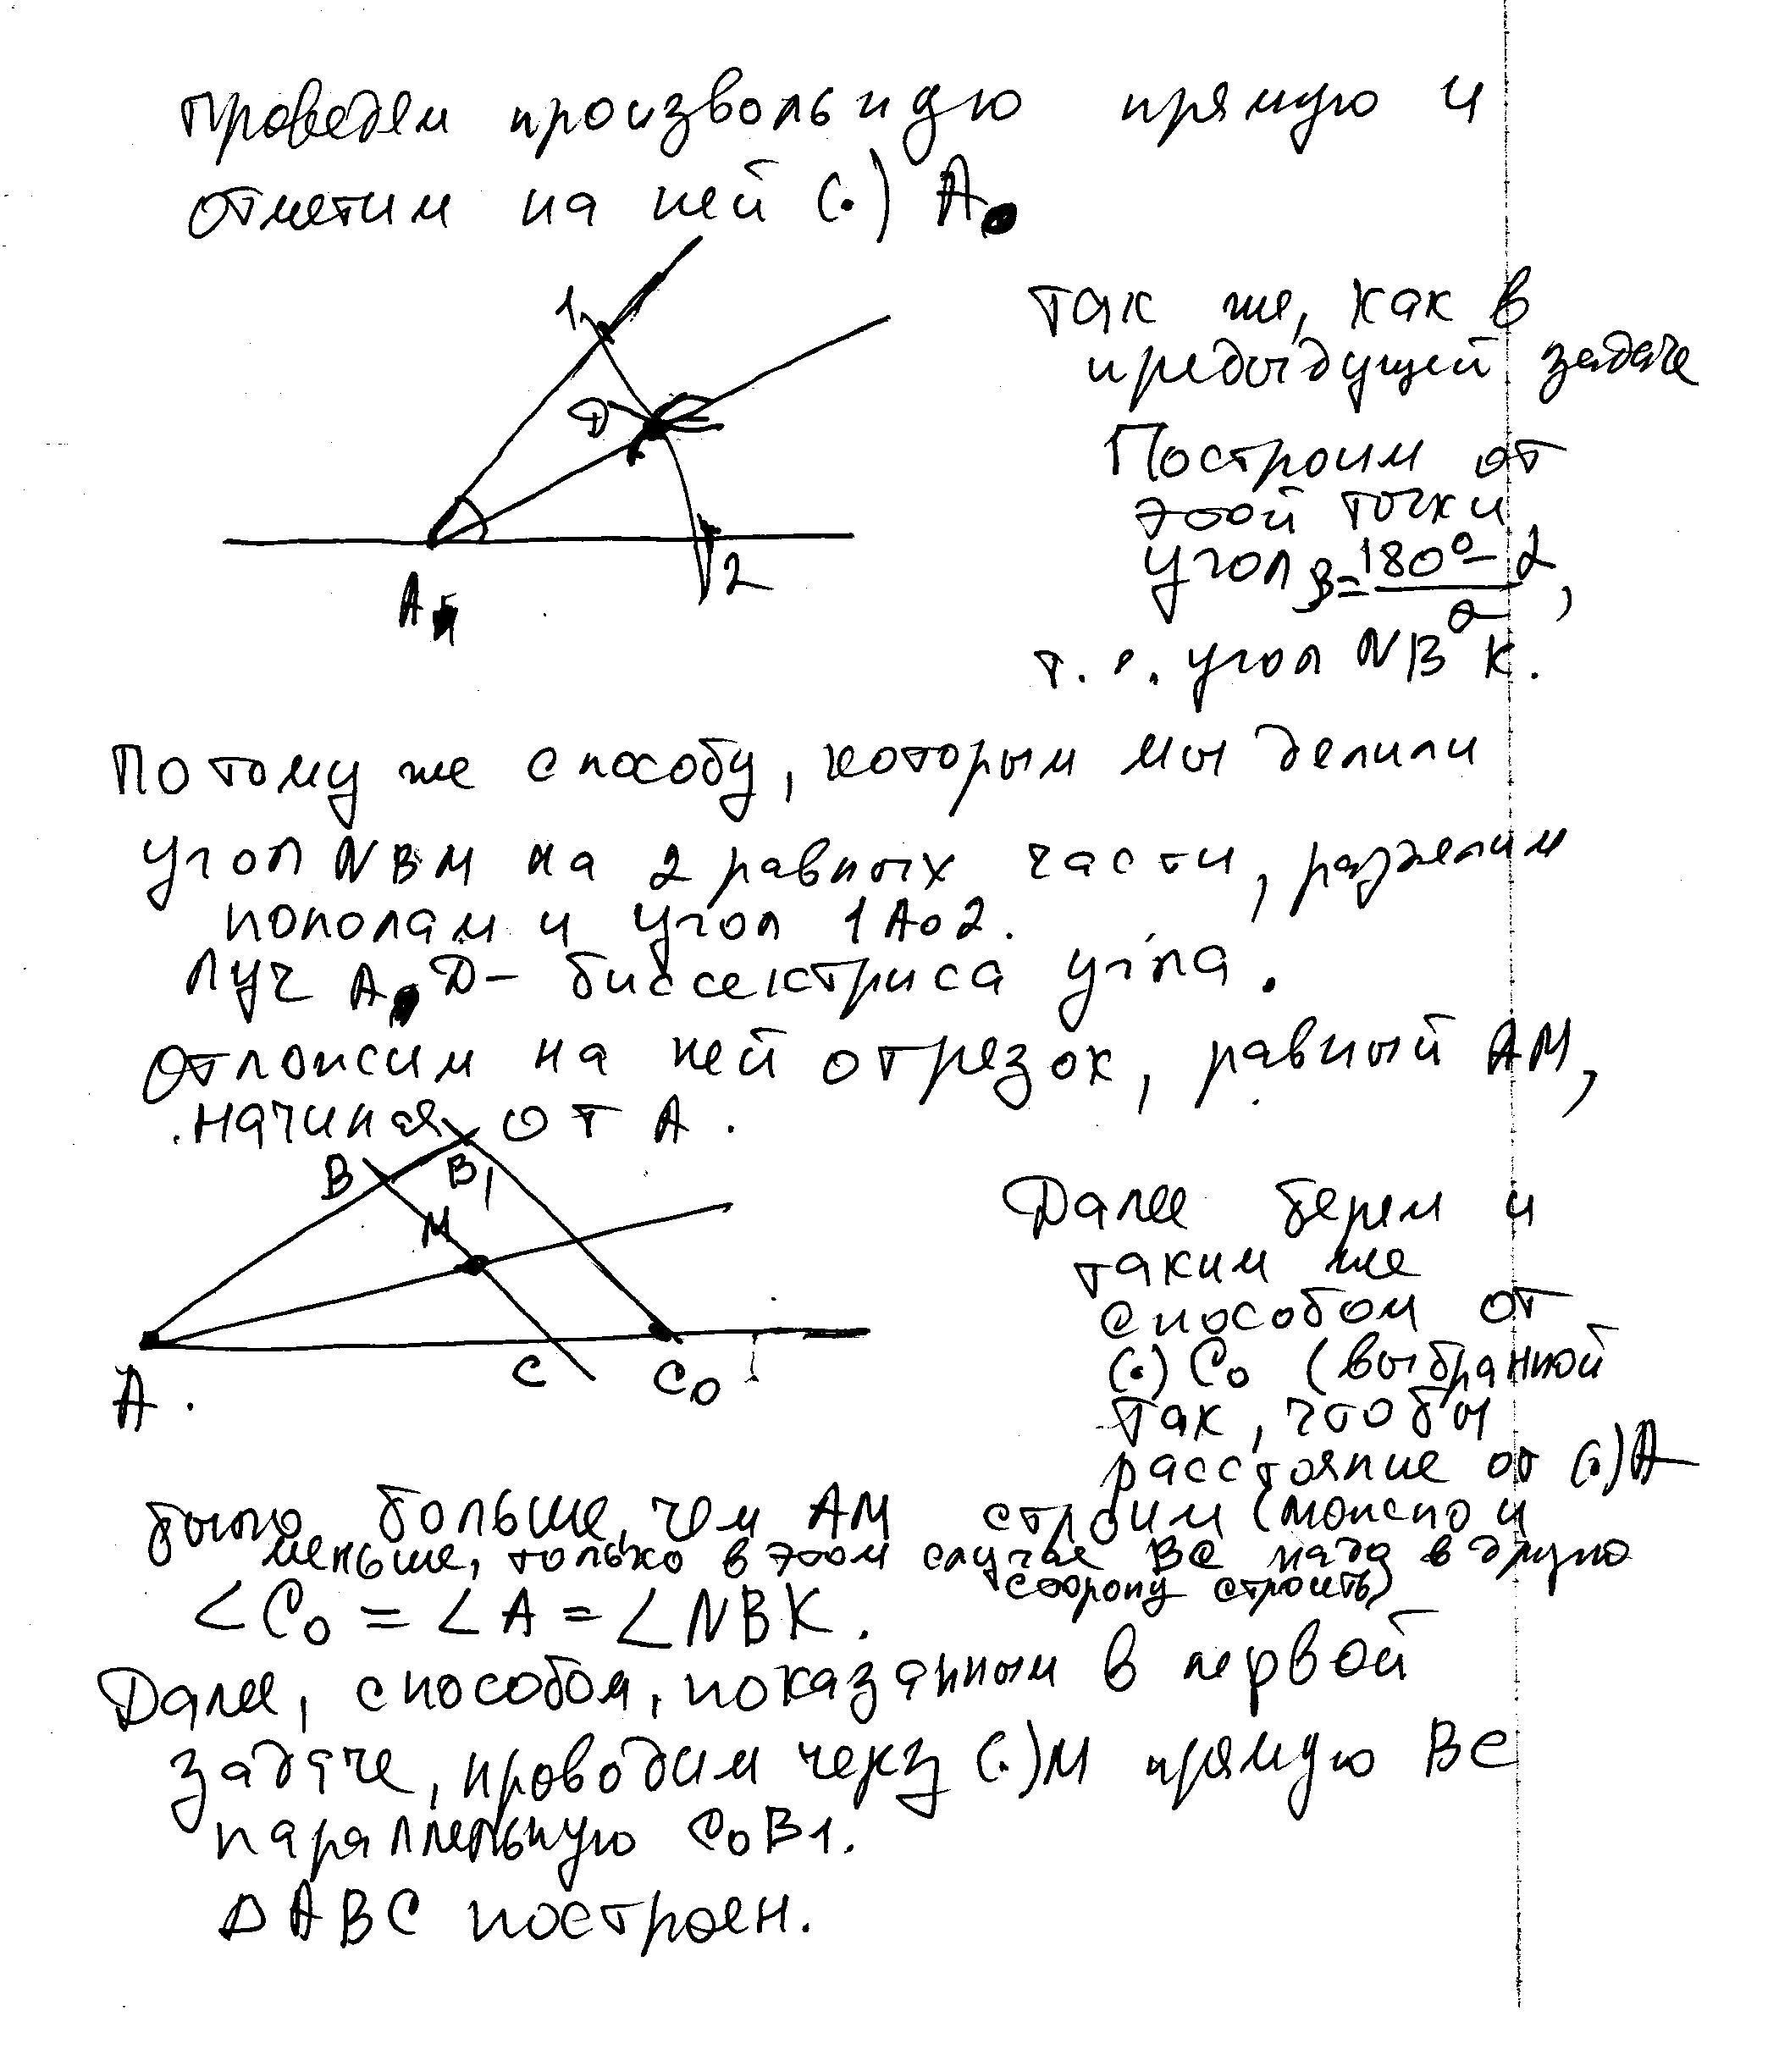 проведем произвольную прямую и
отметим на ней (.) A
1
D
A
2
так же, как в
предыдущей задаче
Построим от
этой точки
угол β = 180° - α / 2,
т. е. угол NBK.
По тому же способу, которым мы делили
угол NBM на 2 равных части, разделим
пополам и угол 1A02.
Луч A D - биссектриса угла.
Отложим на ней отрезок, равный AM,
начиная от A.
B
B1
M
A.
C
C0
Далее берем и
таким же
способом от
(.) C0 (выбранной
так, чтобы
расстояние от (.) A
было больше, чем AM строим (можно и
меньше, только в этом случае BC надо в другую
сторону строить)
∠C0 = ∠A = ∠NBK.
Далее, способом, показанным в первой
задаче, проводим через (.) M прямую BC
параллельную C0B1.
Δ ABC построен.